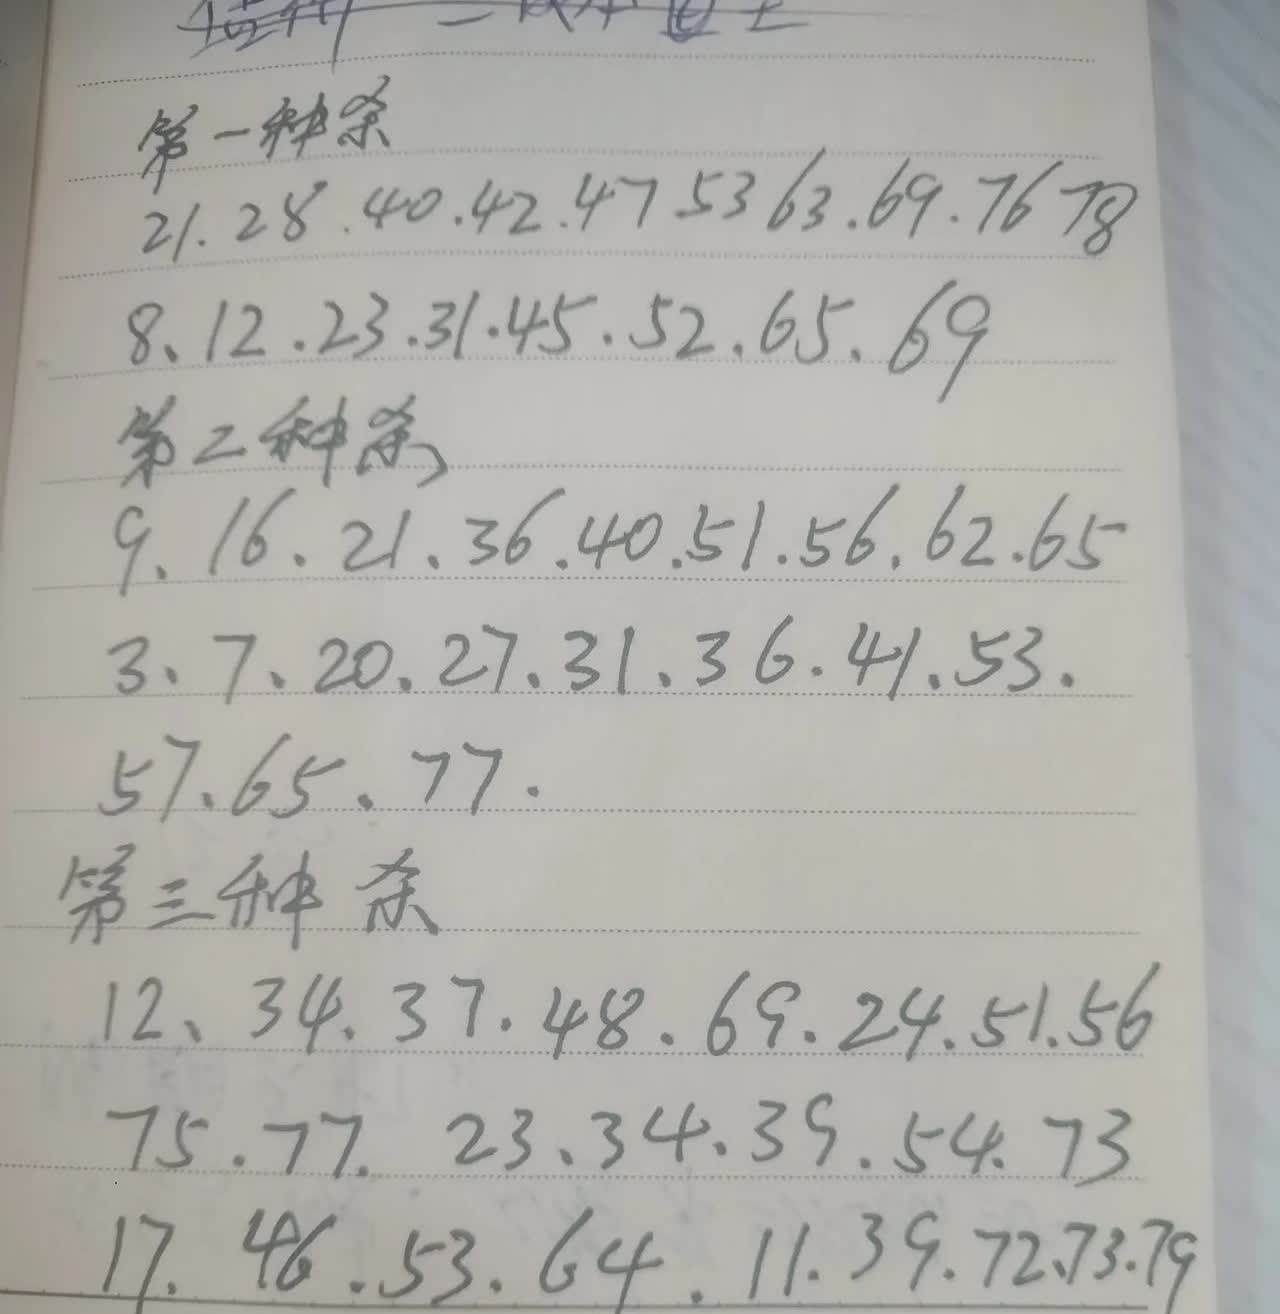 第一种杀
21.28.40.42.47.53 63.69.76 78
8、12.23.31.45.52.65.69
第二种杀
9.16.21.36.40.51.56.62.65
3、7、20.27.31.36.41.53.
57.65.77.
第三种杀
12、34.37.48.69.24.51.56
75.77. 23、34.39.54.73
17.46.53.64.11.39.72、73.79